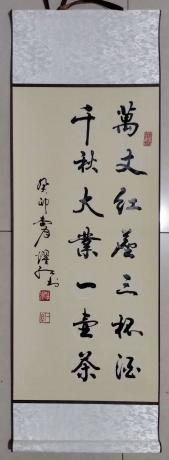 萬丈红塵三杯酒
千秋大業一壺茶
癸卯春